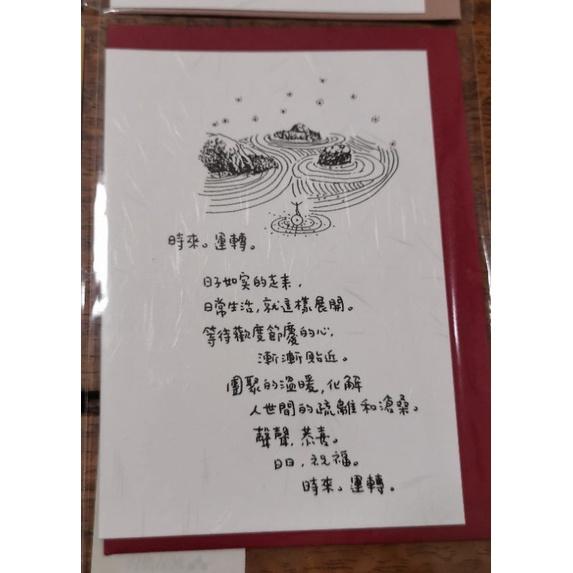 時來。運轉。
日子如实的走来,
日常生活,就這樣展開。
等待歡度節慶的心,
漸漸貼近。
團聚的溫暖,化解
人世間的疏離和滄桑。
聲聲,恭喜。
日日,祝福。
時來。運轉。